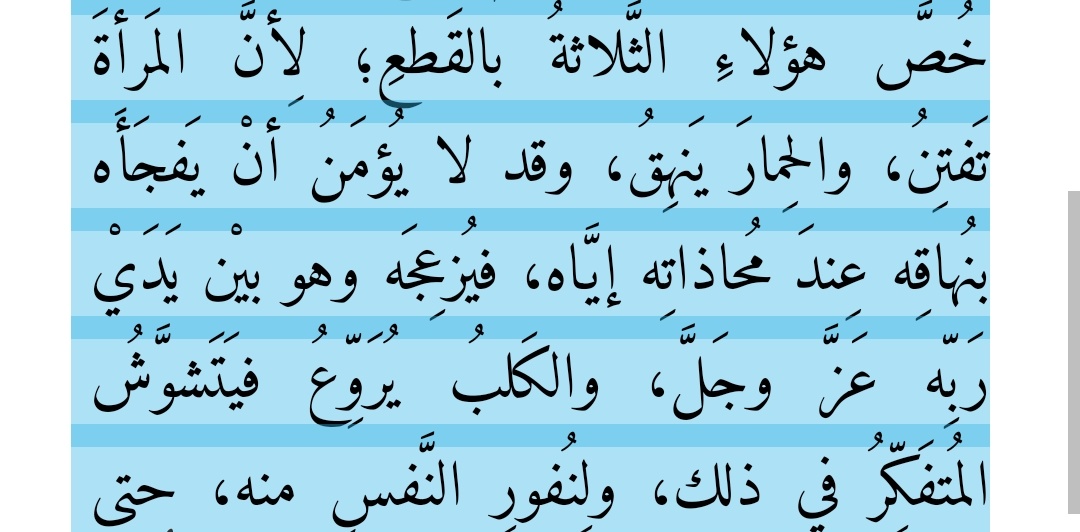 خُصَّ هؤلاءِ الثَّلاثةُ بالقَطعِ؛ لِأنَّ المَرأةَ
تَفتِنُ، والحِمارَ يَنهِقُ، وقد لا يُؤمَنُ أنْ يَفجَأَه
بنُهاقِه عِندَ مُحاذاتِه إيَّاه، فيُزعِجَه وهو بيْن يَدَيْ
رَبِّه عَزَّ وجَلَّ، والكَلبُ يُرَوِّعُ فيَتَشوَّشُ
المُتفَكِّرُ في ذلك، ولِنُفورِ النَّفسِ منه، حتى